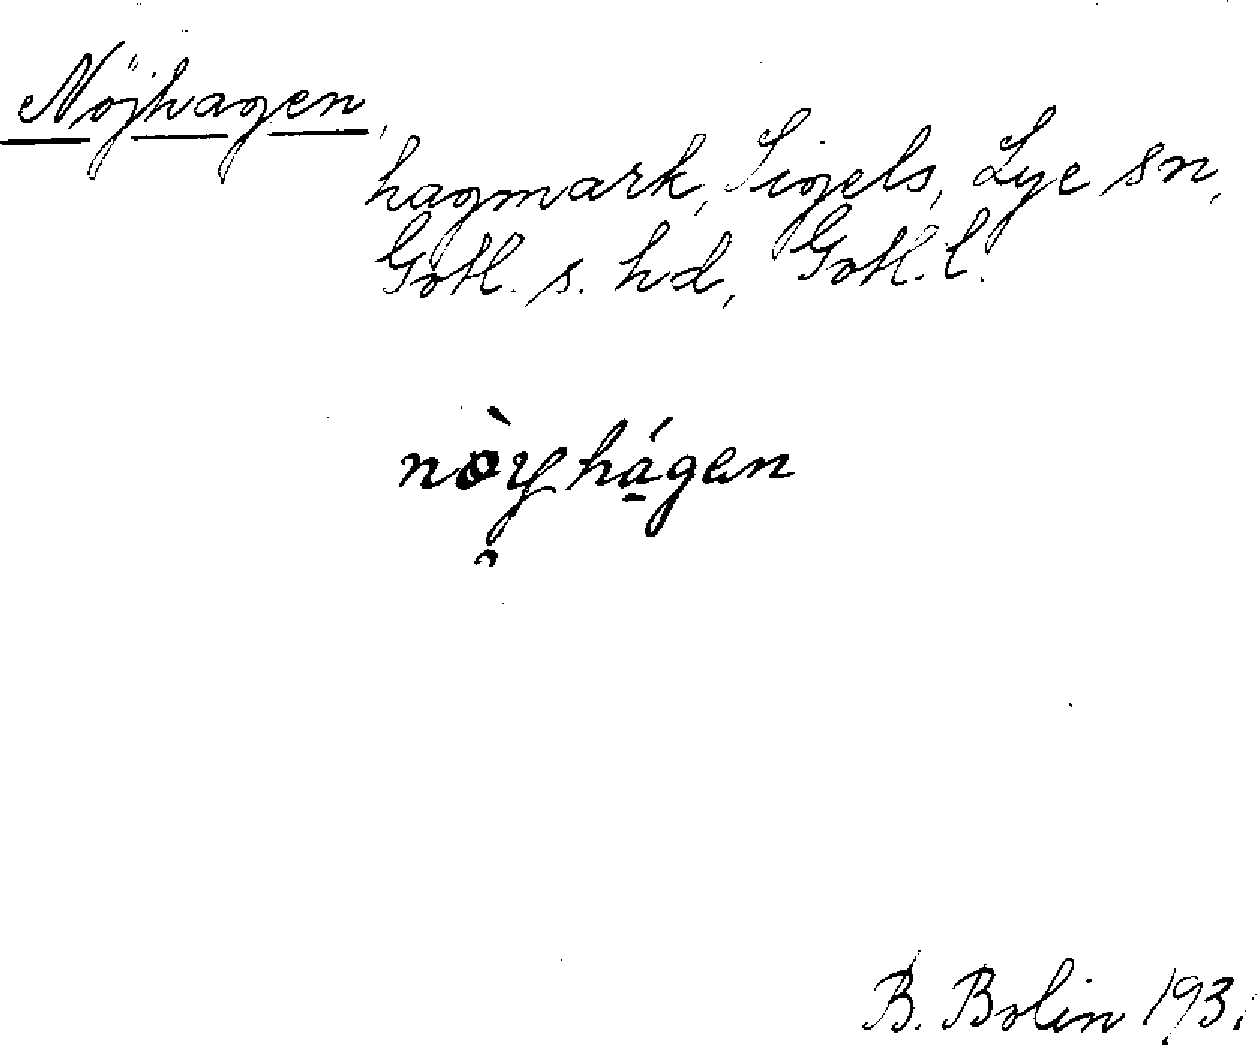 Nöjhagen,
hagmark, Sigels, Lye sn,
Gotl. s. hd, Gotl. l.
nòyhágen
B. Bolin 193